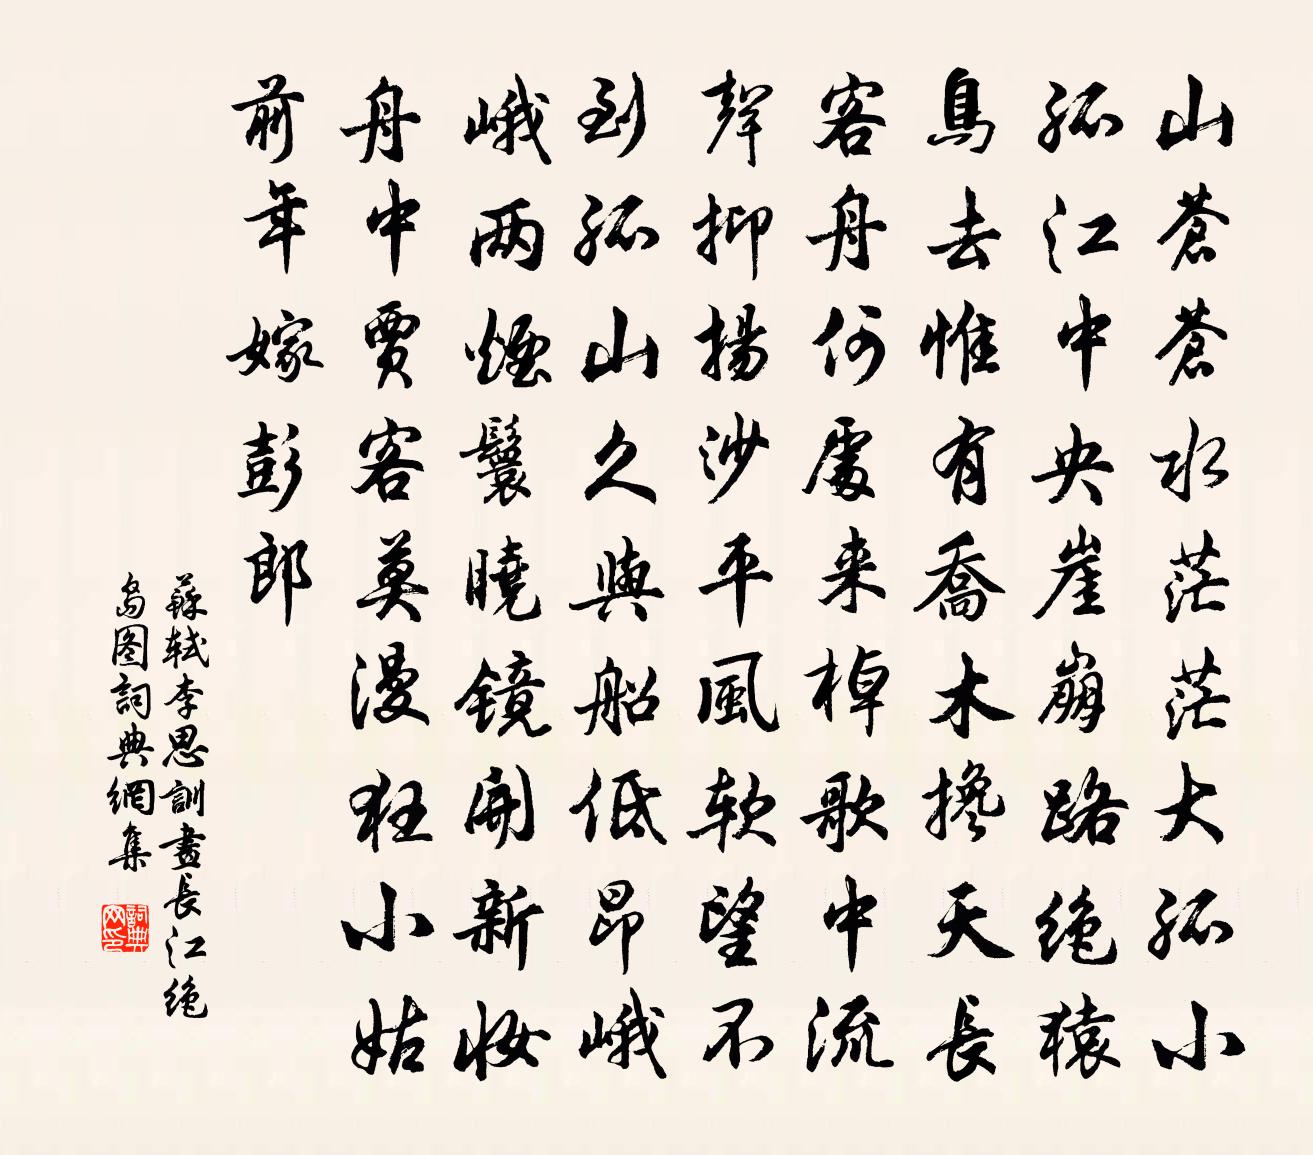 山蒼蒼水茫茫大孤小
孤江中央崖崩路绝猿
鳥去惟有喬木搀天長
客舟何處来棹歌中流
聲抑揚沙平風软望不
到孤山久與船低昂峨
峨两煙鬟曉镜開新妝
舟中賈客莫漫狂小姑
前年嫁彭郎
蘇轼李思訓畫長江绝
島图詞典網集
詞典网印